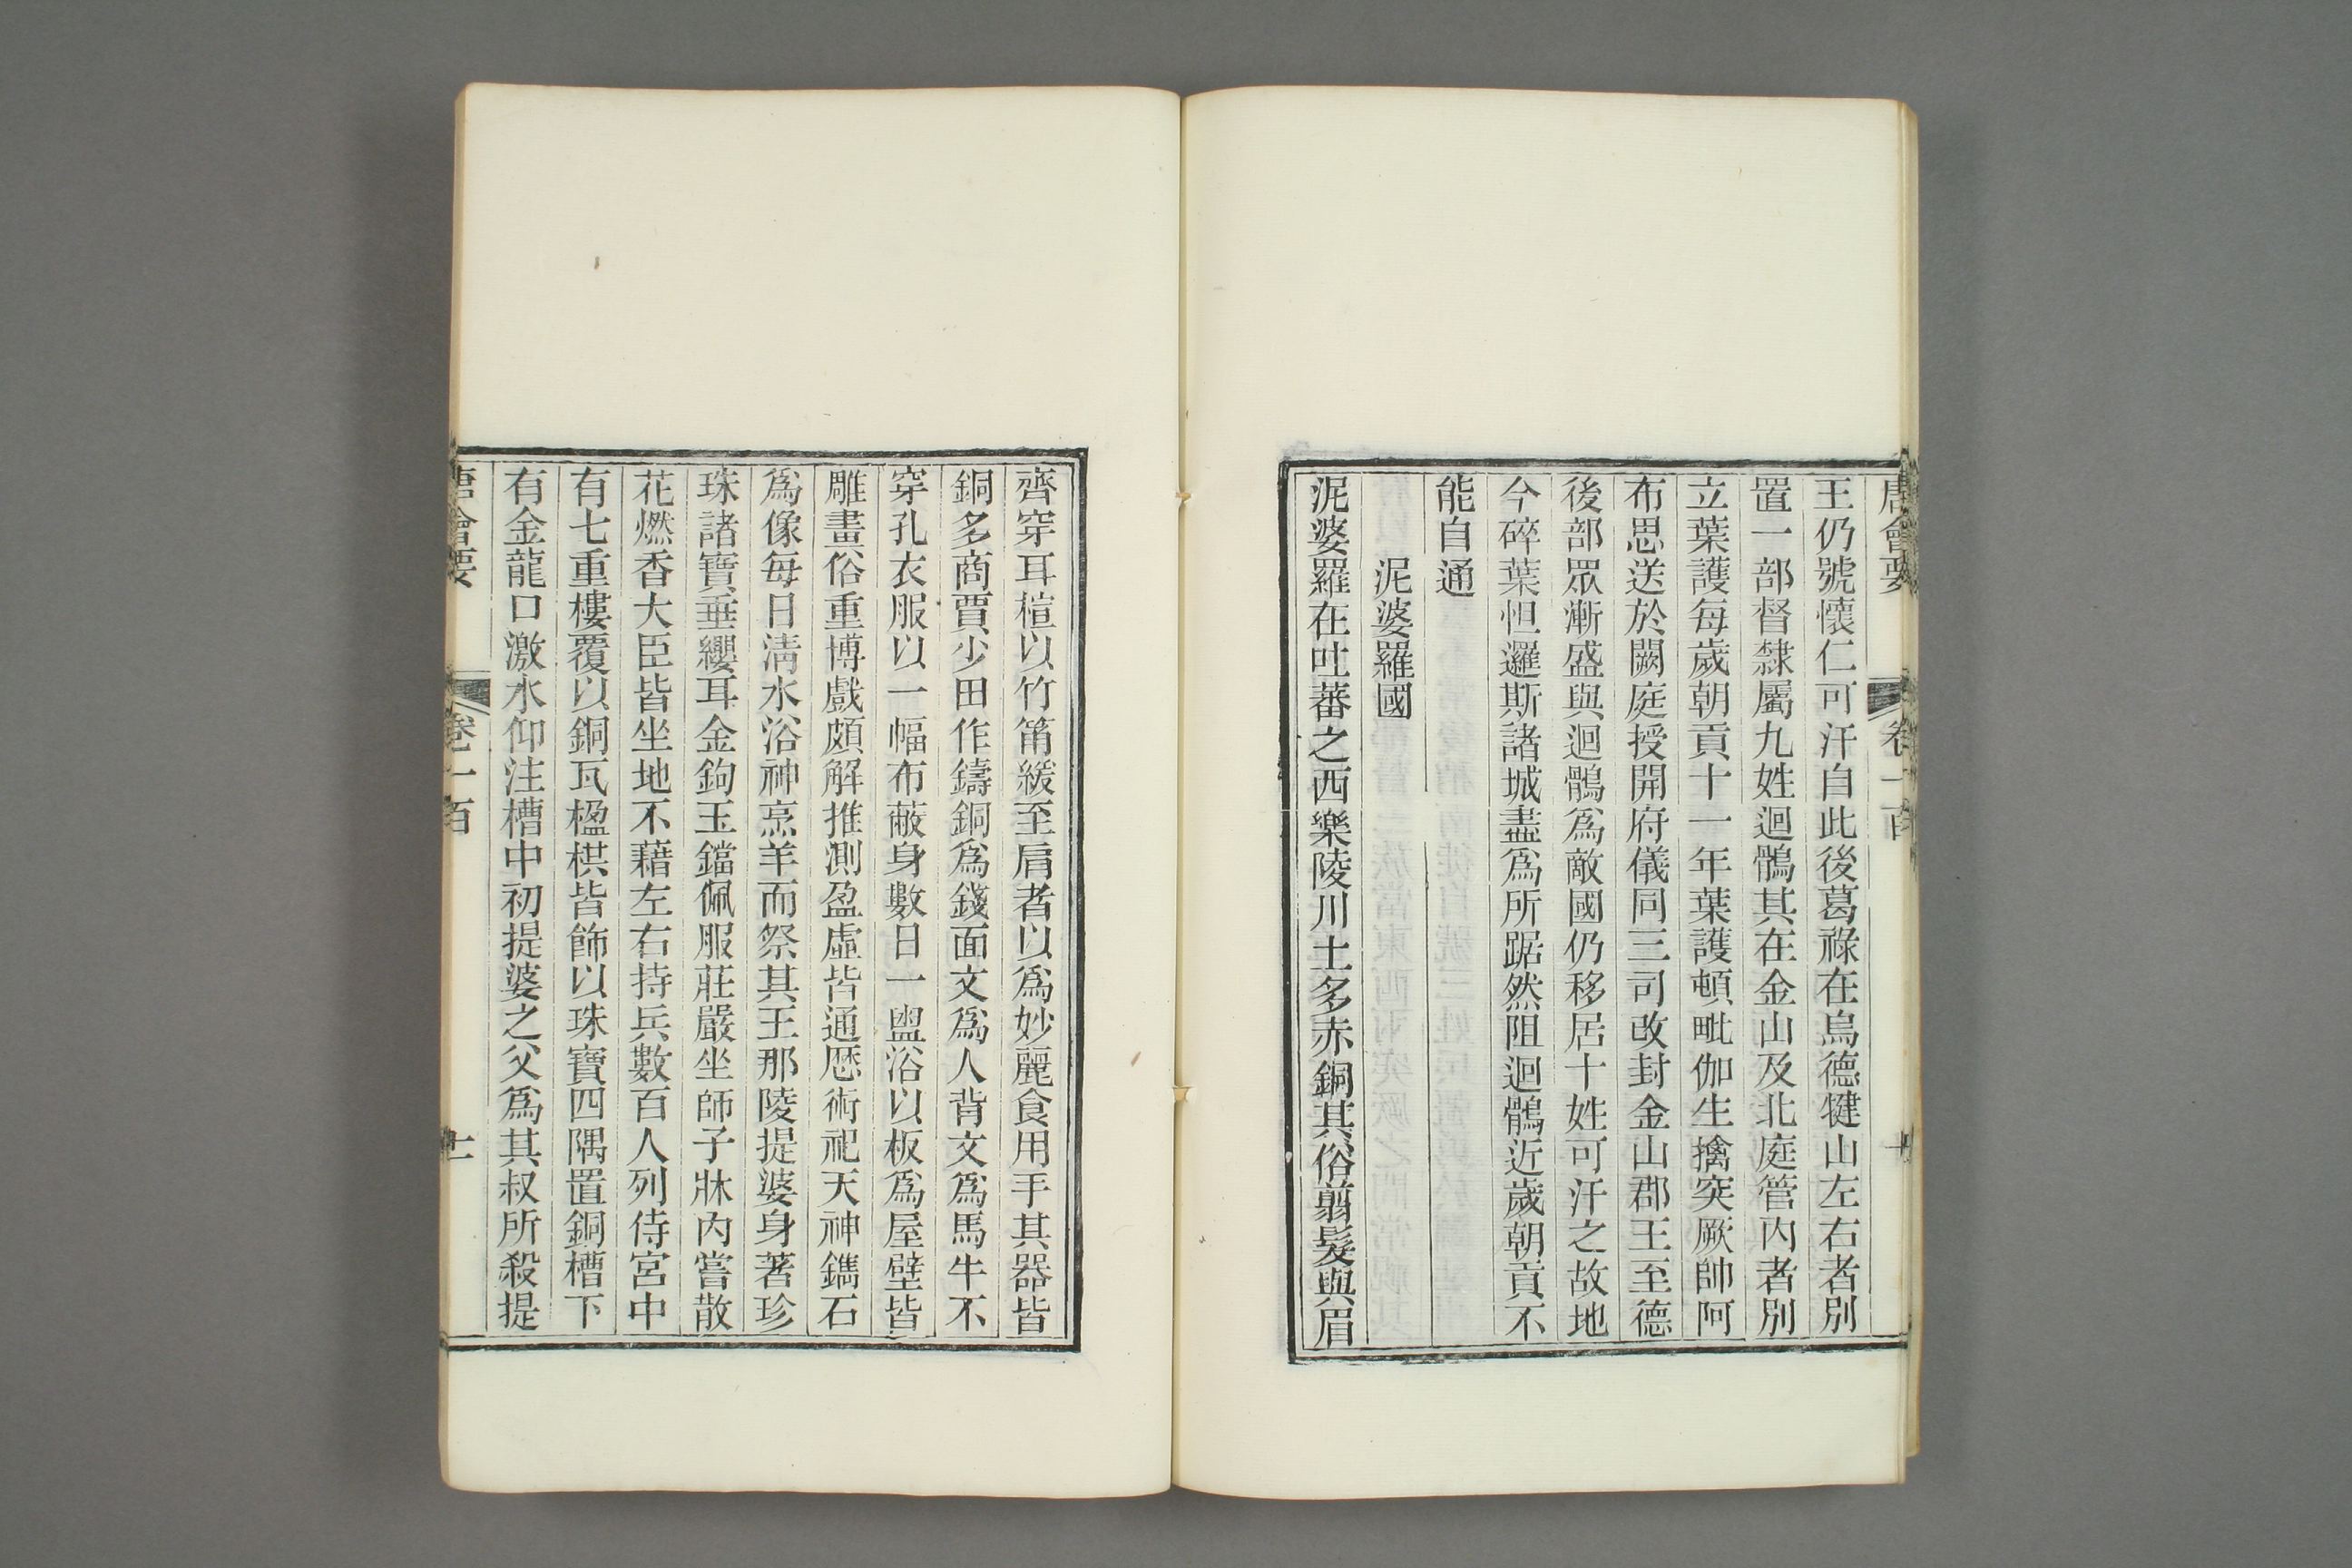 唐會要 卷一百 十
王仍號懷仁可汗自此後葛祿在烏德犍山左右者別
置一部督隸屬九姓迴鶻其在金山及北庭管內者別
立葉護每歲朝貢十一年葉護頓毗伽生擒突厥帥阿
布思送於闕庭授開府儀同三司改封金山郡王至德
後部眾漸盛與迴鶻爲敵國仍移居十姓可汗之故地
今碎葉怛邏斯諸城盡爲所踞然阻迴鶻近歲朝貢不
能自通
泥婆羅國
泥婆羅在吐蕃之西樂陵川土多赤銅其俗翦髮與眉
齊穿耳楦以竹筩緩至肩者以爲妙麗食用手其器皆
銅多商賈少田作鑄銅爲錢面文爲人背文爲馬牛不
穿孔衣服以一幅布蔽身數日一盥浴以板爲屋壁皆
雕畫俗重博戲頗解推測盈虛皆通厯術祀天神鐫石
爲像每日淸水浴神烹羊而祭其王那陵提婆身著珍
珠諸寶垂纓耳金鉤玉鐺佩服莊嚴坐師子牀內嘗散
花燃香大臣皆坐地不藉左右持兵數百人列侍宮中
有七重樓覆以銅瓦楹栱皆飾以珠寶四隅置銅槽下
有金龍口激水仰注槽中初提婆之父爲其叔所殺提
唐會要 卷一百 十一